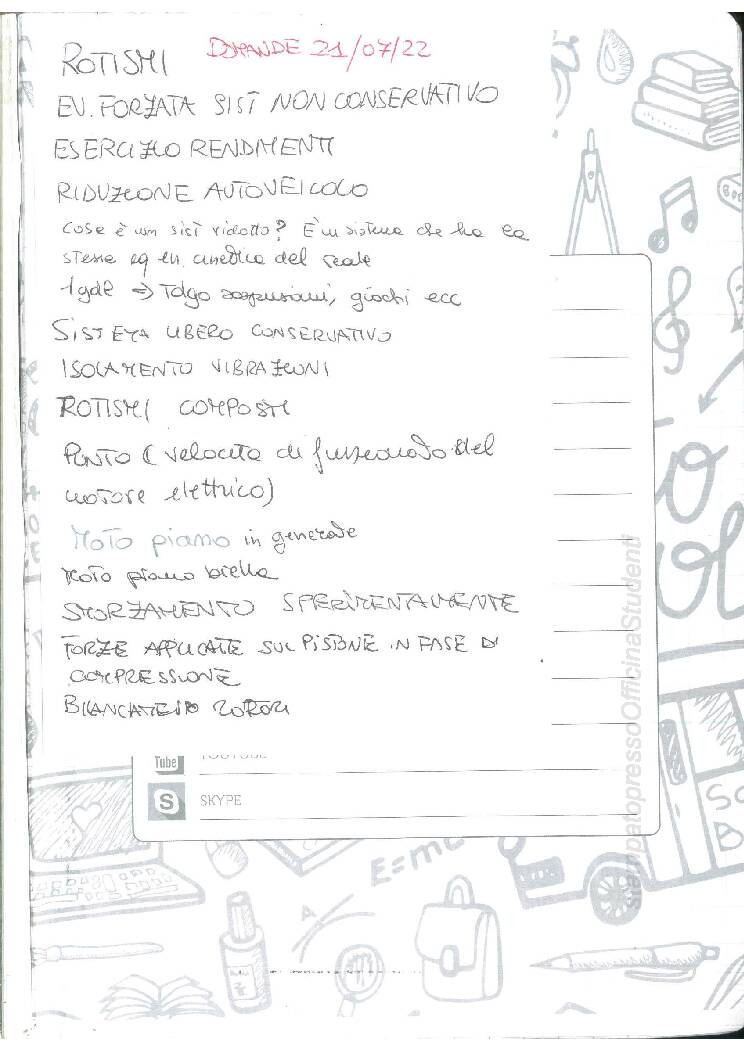 ROTISMI DOMANDE 21/07/22
EV. FORZATA SIST NON CONSERVATIVO
ESERCIZIO RENDIMENTI
RIDUZIONE AUTOVEICOLO
Cose è un sist ridotto? È un sistema che ha la
stessa eq en. cinetica del reale
1gdl => Tolgo sospensioni, giochi ecc
SISTEMA LIBERO CONSERVATIVO
ISOLAMENTO VIBRAZIONI
ROTISMI COMPOSTI
PUNTO (velocità di funzionamento del
motore elettrico)
Moto piano in generale
Moto piano biella
SMORZAMENTO SPERIMENTALMENTE
FORZE APPLICATE SUL PISTONE IN FASE DI
COMPRESSIONE
BILANCIAMENTO ROTORI
Tube YOUTUBE
S SKYPE
E=mc
stampatopressoOfficinaStudenti